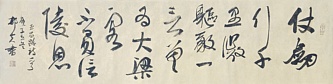 仗劍
行千
里微
軀敢一
言曾
為大梁
客
不負信
陵恩